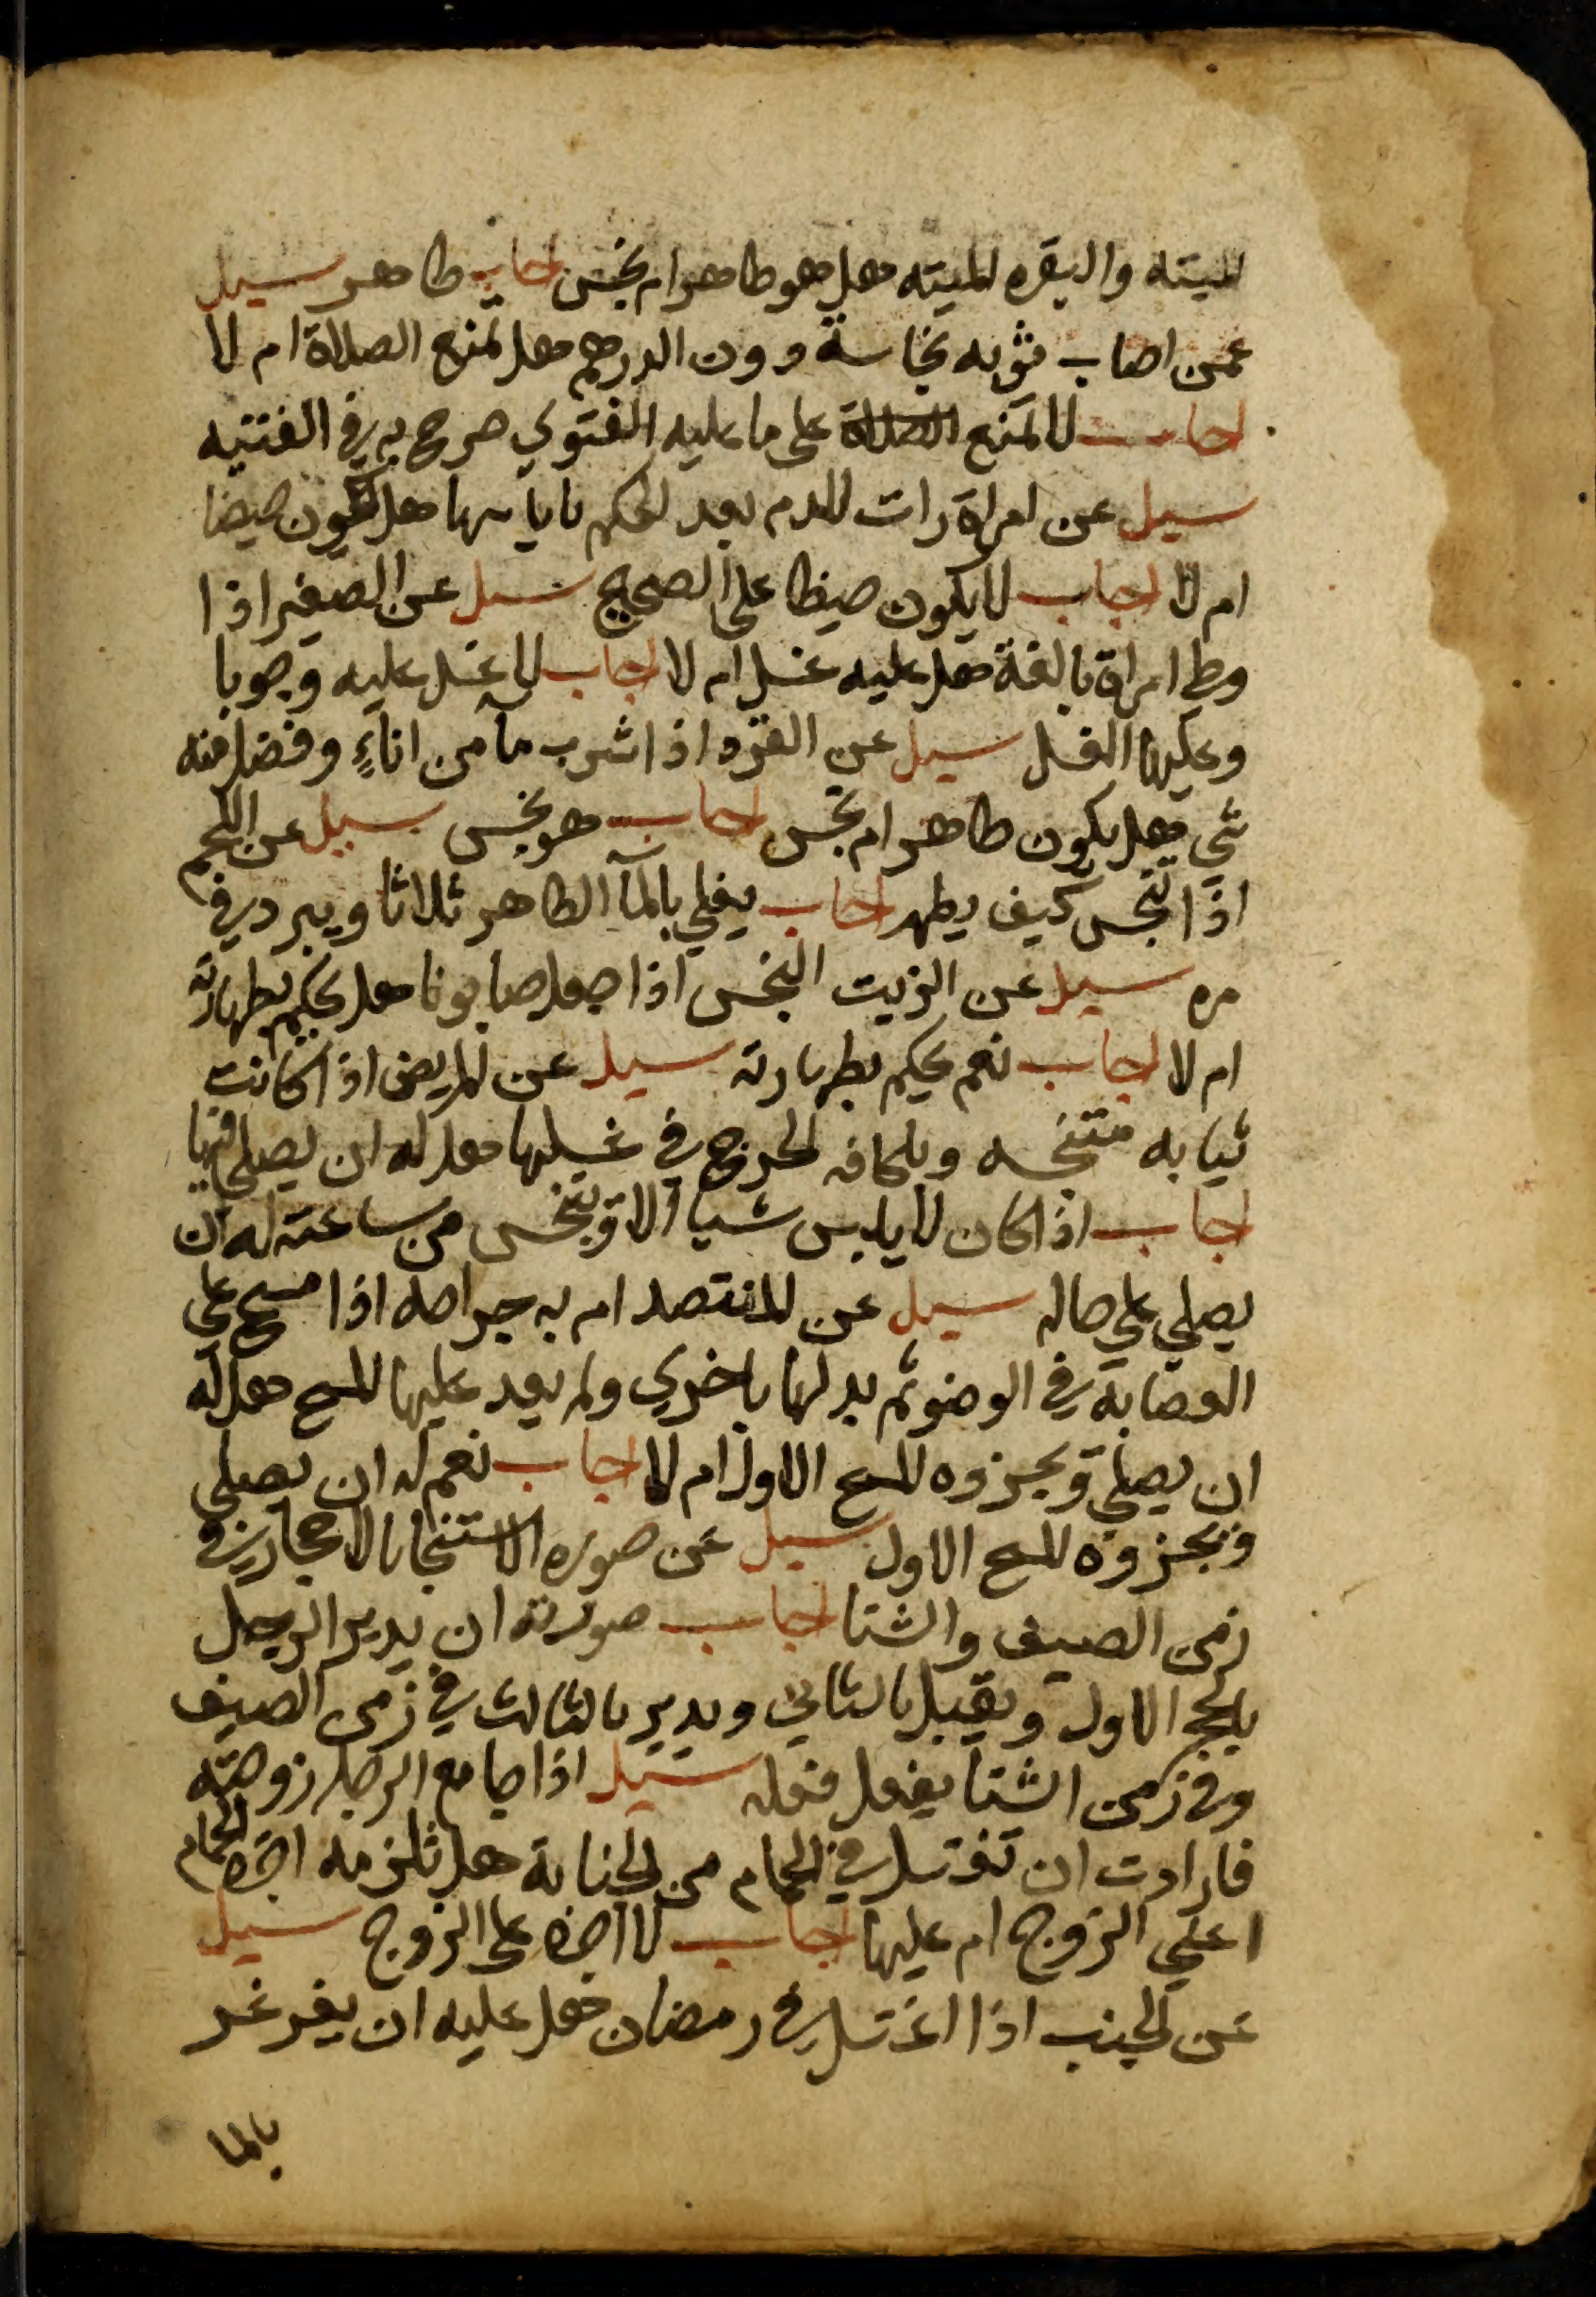 الميته والبقره الميته هل هو طاهر ام نجس اجاب طاهر سيل
عمن اصاب ثوبه نجاسة دون الدرهم هل تمنع الصلاة ام لا
اجاب لا تمنع الصلاة على ما عليه الفتوي صرح به في القنيه
سيل عن امراة رات الدم بعد الحكم باياسها هل يكون حيضا
ام لا اجاب لا يكون حيضا على الصحيح سيل عن الصغير اذا
وطي امراة بالغة هل عليه غسل ام لا اجاب لا غسل عليه وجوبا
وعليها الغسل سيل عن القرد اذا شرب مآ من اناءٍ وفضل منه
شي هل يكون طاهر ام نجس اجاب هو نجس سيل عن اللحم
اذا تنجس كيف يطهر اجاب يغلي بالمآ الطاهر ثلاثا ويبرد في كل
مره سيل عن الزيت النجس اذا جعل صابونا هل يحكم بطهارته
ام لا اجاب نعم يحكم بطهارته سيل عن المريض اذا كانت
ثيابه متنجسه ويلحقه الحرج في غسلها هل له ان يصلي فيها
اجاب اذا كان لا يلبس شيا الا وتنجس من ساعته له ان
يصلي علي حاله سيل عن المفتصد ام به جراحه اذا مسح على
العصابة في الوضو ثم بدلها باخري ولم يعد عليها المسح هل له
ان يصلي ويجزوه المسح الاول ام لا اجاب نعم له ان يصلي
ويجزوه المسح الاول سيل عن صوره الاستنجا بالاحجار في
زمن الصيف والشتا اجاب صورته ان يدبر الرجل
بالحجر الاول ويقبل بالثاني ويدبر بالثالث في زمن الصيف
وفي زمن الشتا يفعل فعله سيل اذا جامع الرجل زوجته
فارادت ان تغتسل في الحمام من الجنابة هل تلزمه اجرة الحمام
اعلي الزوج ام عليها اجاب لا اجرة على الزوج سيل
عن الجنب اذا اغتسل في رمضان هل عليه ان يغرغر
بالما